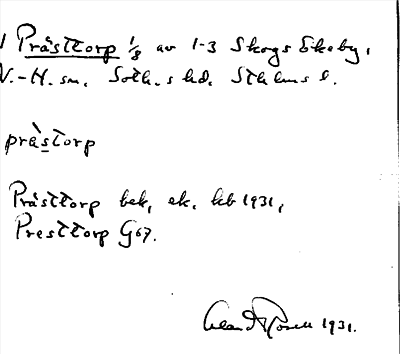 Prästtorp 1/8 av 1-3 Skogs Ekeby,
V.-H. sn. Soth. s hd. Sthlms l.
prästorp
Prästtorp bek, ek. kb 1931,
Presttorp G67.
1931.